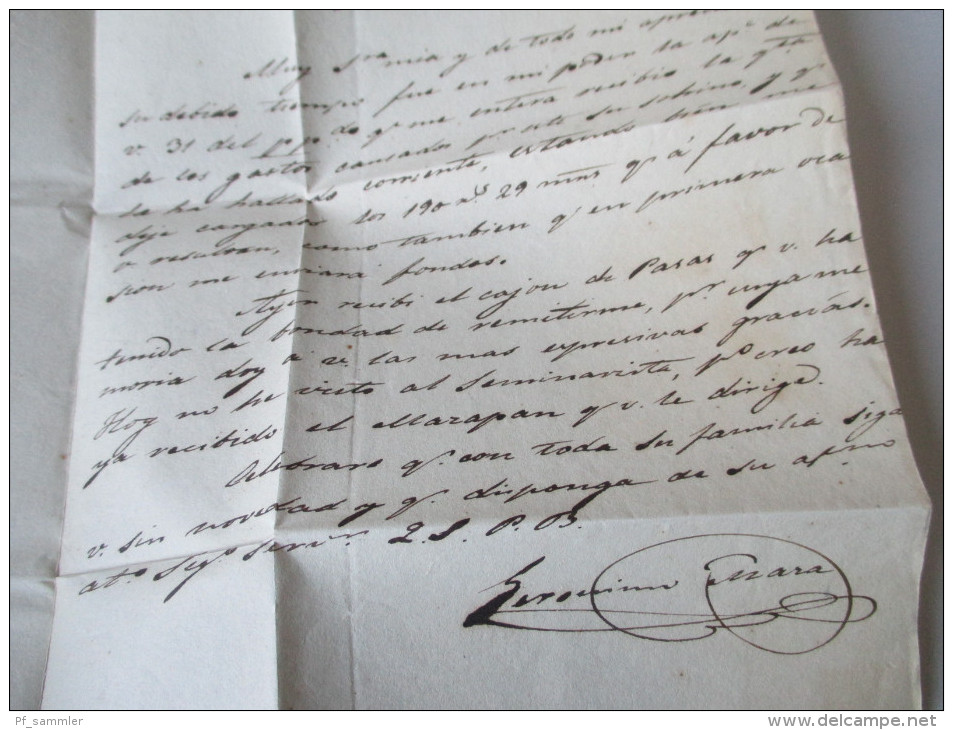 Muy Sra mia y de todo mi apre
su debido tiempo fue en mi poder la apda de
v. 31 del ppdo qe me entera recibio la qta
de los gastos causados pr este su sobrino, y qe
la ha hallado corriente, estando bien me
deje cargados los 190 rs 29 mrs qe á favor de
v. resultan, como tambien qe en primera oca
sion me enviará fondos.
Ayer recibí el cajon de Pasas qe v. ha
tenido la bondad de remitirme, pr cuya me
moria doy á v. las mas espresivas gracias.
Hoy no he visto al Seminarista, po creo ha
ya recibido el Mazapan qe v. le dirige.
Celebraré qe con toda su familia siga
v. sin novedad y qe disponga de su afmo
ato Sego Servr Q. S. P. B.
Geronimo Mara
Pf_sammler
www.delcampe.net